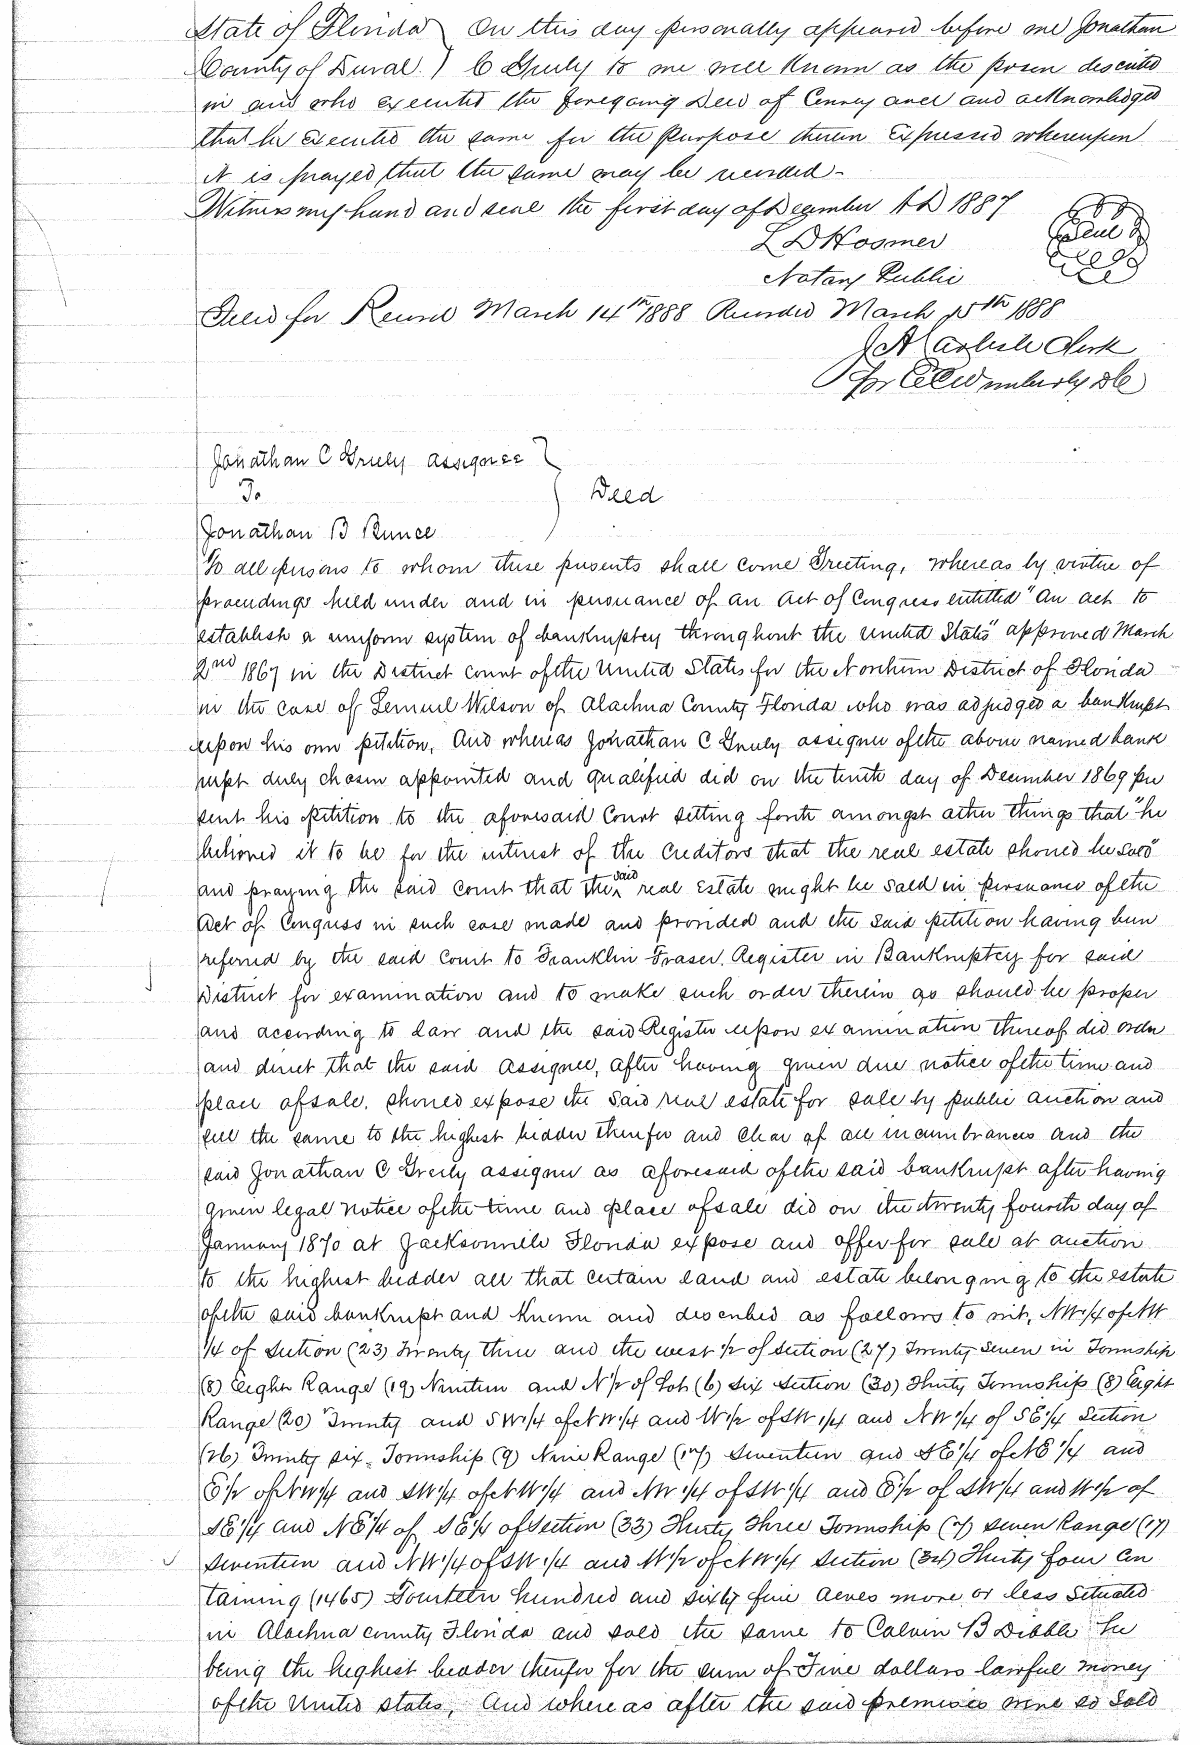 State of Florida ) On this day personally appeared before me Jonathan
County of Duval ) C Greely to me well known as the person described
in and who executed the foregoing Deed of Conveyance and acknowledged
that he executed the same for the Purpose therein Expressed whereupon
it is prayed that the same may be recorded -
Witness my hand and seal the first day of December AD 1887
L D Hosmer Seal
Notary Public
Filed for Record March 14th 1888 Recorded March 15th 1888
J A Carlisle Clerk
for C C Wimberly DC
Jonathan C Greely assignee }
To } Deed
Jonathan B Bunce
To all persons to whom these presents shall come Greeting, whereas by virtue of
proceedings held under and in persuance of an Act of Congress entitled "An act to
establish a uniform system of bankruptcy throughout the United States" approved March
2nd 1867 in the District Court of the United States for the Northern District of Florida
in the case of Lemuel Wilson of Alachua County Florida who was adjudged a bankrupt
upon his own petition, And whereas Jonathan C Greely assignee of the above named bank
rupt duly chosen appointed and qualified did on the tenth day of December 1869 pre
sent his petition to the aforesaid Court setting forth amongst other things that "he
believed it to be for the interest of the Creditors that the real estate should be sold"
and praying the said Court that the said real Estate might be sold in persuance of the
Act of Congress in such case made and provided and the said petition having been
referred by the said Court to Franklin Fraser, Register in Bankruptcy for said
District for examination and to make such order therein as should be proper
and according to law and the said Register upon examination thereof did order
and direct that the said Assignee, after having given due notice of the time and
place of sale, should expose the said real estate for sale by public auction and
sell the same to the highest bidder therefor and clear of all incumbrances and the
said Jonathan C Greely assignee as aforesaid of the said bankrupt after having
given legal notice of the time and place of sale did on the twenty fourth day of
January 1870 at Jacksonville Florida expose and offer for sale at auction
to the highest bidder all that certain land and estate belonging to the estate
of the said bankrupt and known and described as follows to wit, NW 1/4 of NW
1/4 of Section (23) Twenty three and the west 1/2 of section (27) Twenty Seven in Township
(8) Eight Range (19) Nineteen and N 1/2 of Lot (6) six Section (30) Thirty Township (8) Eight
Range (20) Twenty and SW 1/4 of NW 1/4 and W 1/2 of SW 1/4 and NW 1/4 of SE 1/4 Section
(26) Twenty six, Township (9) Nine Range (17) Seventeen and SE 1/4 of NE 1/4 and
E 1/2 of NW 1/4 and SW 1/4 of NW 1/4 and NW 1/4 of SW 1/4 and E 1/2 of SW 1/4 and W 1/2 of
SE 1/4 and NE 1/4 of SE 1/4 of Section (33) Thirty Three Township (7) seven Range (17)
Seventeen and NW 1/4 of SW 1/4 and W 1/2 of NW 1/4 Section (34) Thirty four Con
taining (1465) Fourteen hundred and sixty five acres more or less Situated
in Alachua county Florida and sold the same to Calvin B Dibble he
being the highest beader therefor for the sum of Five dollars lawful money
of the United States, And where as after the said premises were so Sold